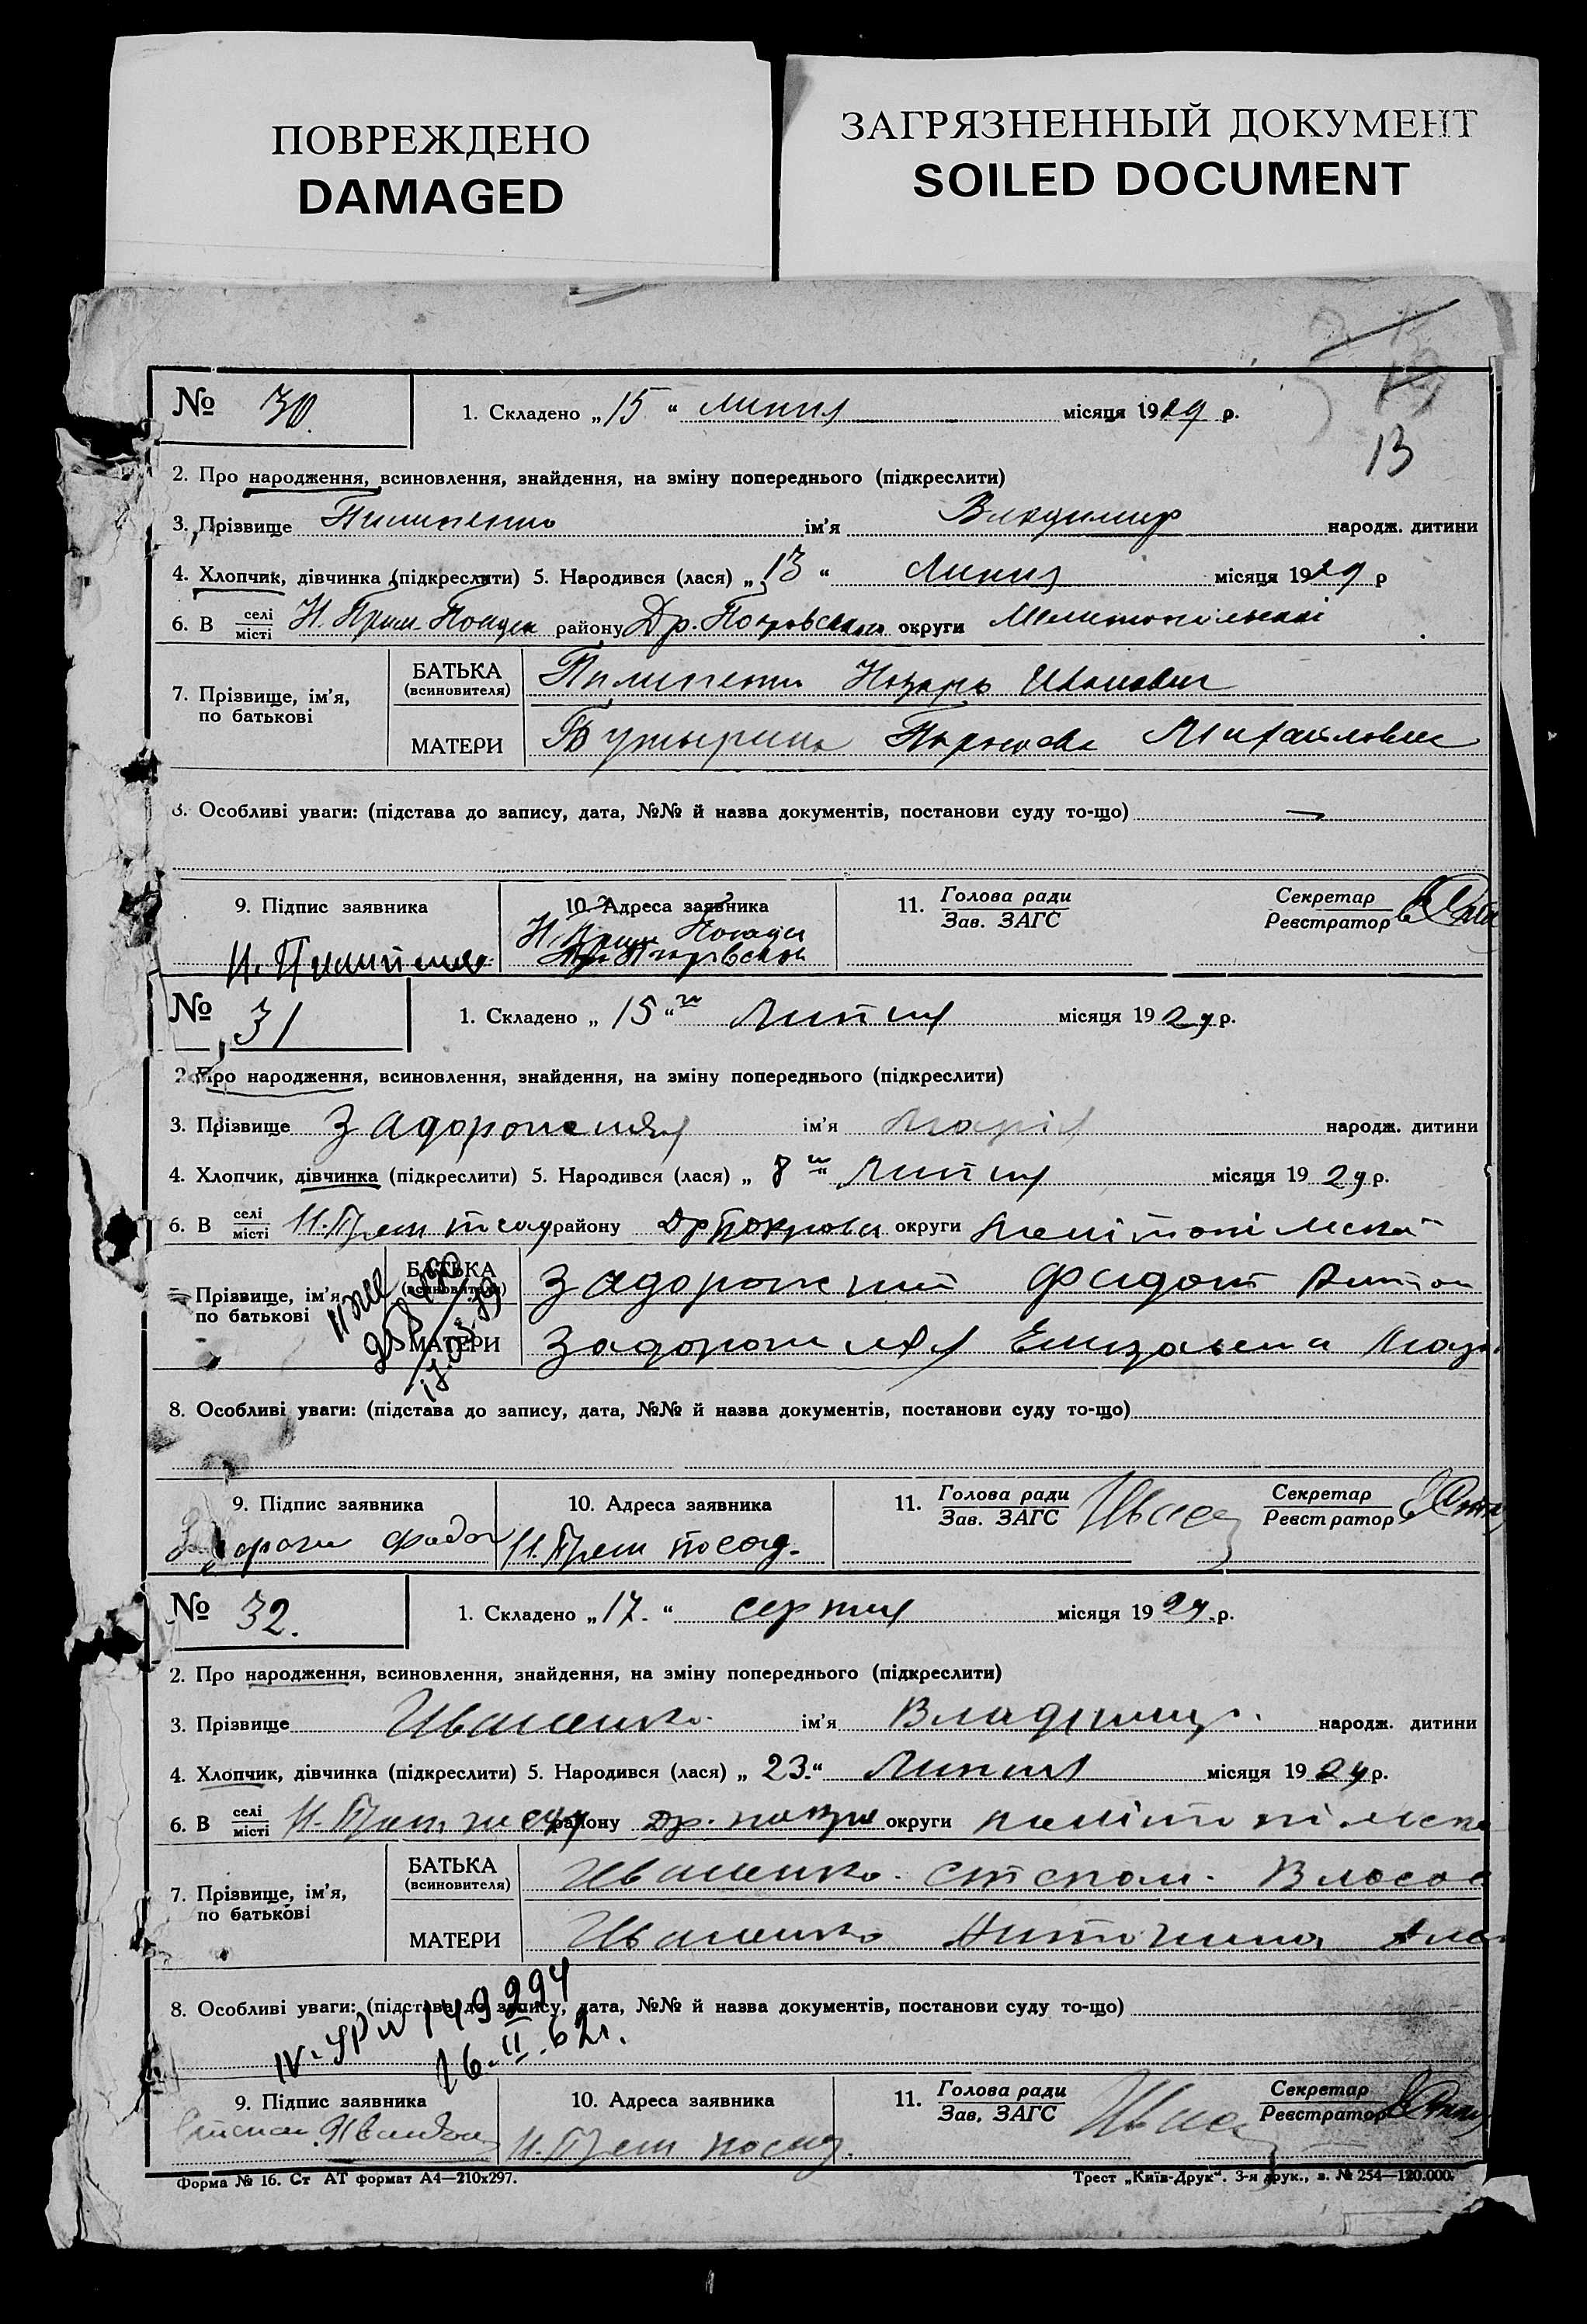 ПОВРЕЖДЕНО
DAMAGED
ЗАГРЯЗНЕННЫЙ ДОКУМЕНТ
SOILED DOCUMENT
13
№ 30. 1. Складено „15“ липня місяця 1929 р.
2. Про народження, всиновлення, знайдення, на зміну попереднього (підкреслити)
3. Прізвище Пилипенко ім'я Владимир народж. дитини
4. Хлопчик, дівчинка (підкреслити) 5. Народився (лася) „13“ Липня місяця 1929 р
6. В селі місті Н. Прим. Посад району Др. Покровського округи Мелитопільські
7. Прізвище, ім'я, по батькові
БАТЬКА (всиновителя) Пилипенко Назарь Иванович
МАТЕРИ Михайловне
8. Особливі уваги: (підстава до запису, дата, №№ й назва документів, постанови суду то-що) —
9. Підпис заявника 10. Адреса заявника 11. Голова ради Зав. ЗАГС Секретар Реєстратор
Н. Прим Посад
Н. Пилипенко
№ 31 1. Складено „15“ Липня місяця 1929 р.
2. Про народження, всиновлення, знайдення, на зміну попереднього (підкреслити)
3. Прізвище Задорожняя ім'я Марія народж. дитини
4. Хлопчик, дівчинка (підкреслити) 5. Народився (лася) „8“ Липня місяця 1929 р.
6. В селі місті Н. Прим посад району Др Покровск округи Мелітопільской
7. Прізвище, ім'я, по батькові
БАТЬКА (всиновителя) Задорожний Фадот Антон
МАТЕРИ Задорожняя Елизавета
8. Особливі уваги: (підстава до запису, дата, №№ й назва документів, постанови суду то-що)
9. Підпис заявника 10. Адреса заявника 11. Голова ради Зав. ЗАГС Секретар Реєстратор
Н. Прим посад.
№ 32. 1. Складено „17.“ серпня місяця 1929. р.
2. Про народження, всиновлення, знайдення, на зміну попереднього (підкреслити)
3. Прізвище Иваненко ім'я Владимир. народж. дитини
4. Хлопчик, дівчинка (підкреслити) 5. Народився (лася) „23.“ Липня місяця 1929 р.
6. В селі місті Н. Прим посад району Др. Покро округи мелітопільска
7. Прізвище, ім'я, по батькові
БАТЬКА (всиновителя) Иваненко Степан Власов
МАТЕРИ Иваненко Антонина
8. Особливі уваги: (підстава до запису, дата, №№ й назва документів, постанови суду то-що)
149294
16.II.62г.
9. Підпис заявника 10. Адреса заявника 11. Голова ради Зав. ЗАГС Секретар Реєстратор
Степан Иваненко Н. Прим посад.
Форма № 16. Ст АТ формат А4—210х297. Трест „Київ-Друк“. 3-я друк., з. № 254—120.000.